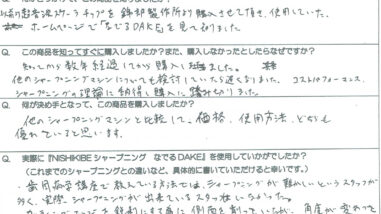 以前の超音波スケーラーチップを錦部製作所より購入させて頂き、使用していた。
ホームページで「なでるDAKE」を見て知りました。
Q. この商品を知ってすぐに購入しましたか？また、購入しなかったとしたらなぜですか？
知ってから数年経過してから購入しました。
他のシャープニングマシンについても検討していたら遅くなりました。コストパフォーマンス、
シャープニングの理論に納得し購入に踏み切りました。
Q. 何が決め手となって、この商品を購入しましたか？
他のシャープニングマシンと比較して、価格、使用方法、どちらも
優れていると思います。
Q. 実際に『NISHIKIBEシャープニング なでるDAKE』を使用していかがでしたか？
（これまでのシャープニングとの違いなど、具体的に書いていただけると幸いです。）
・歯周病学講座で教えている方法では、シャープニングが難かしいというスタッフが
多く、実際シャープニングが出来ているスタッフは